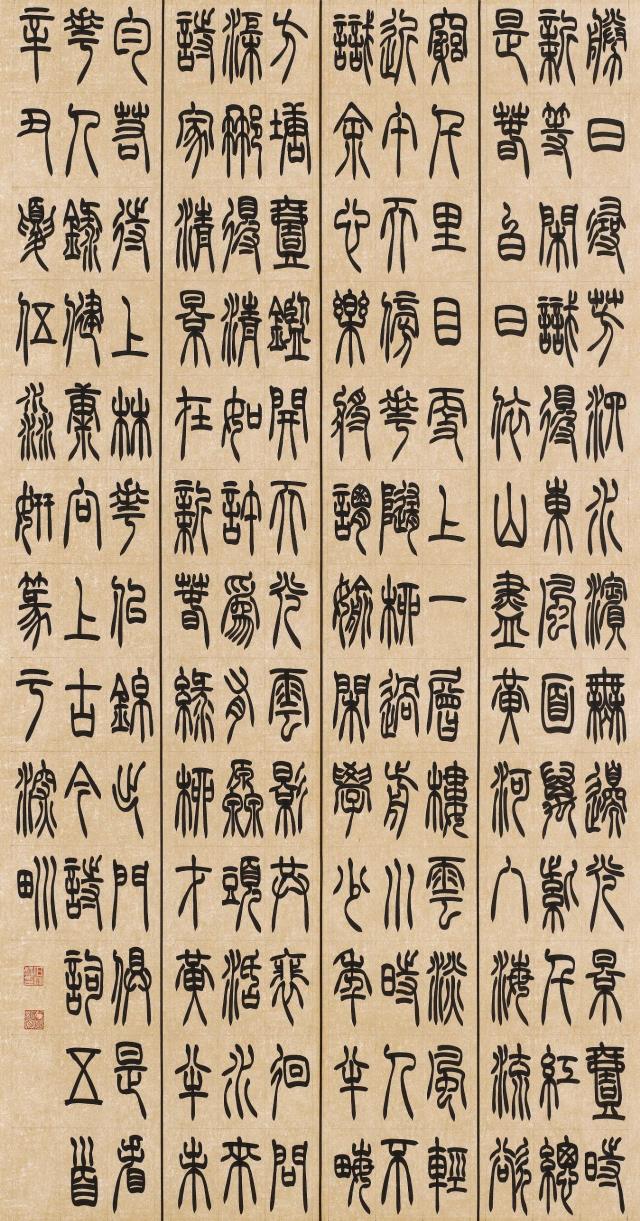 勝日尋芳泗水濱無邊光景壹時
新等閑識得東風面萬紫千紅總
是春白日依山盡黃河入海流欲
窮千里目更上一層樓雲淡風輕
近午天傍花隨柳過前川時人不
識余心樂將謂偷閑學少年半畝
方塘壹鑑開天光雲影共裴徊問
渠那得清如許為有源頭活水來
詩家清景在新春綠柳才黃半未
勻若待上林花似錦出門俱是看
花人錄健康向上古今詩詞五首
辛丑夏伍淼妍篆于深甽